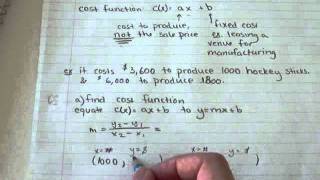 cost function C(x) = ax + b
cost to produce,
not the sale price
fixed cost
ex. leasing a
venue for
manufacturing
ex it costs $3,600 to produce 1000 hockey sticks
& $6,000 to produce 1800.
a) find cost function
equate C(x) = ax + b to y = mx + b
m = y₂ - y₁ =
x₂ - x₁
(1000,